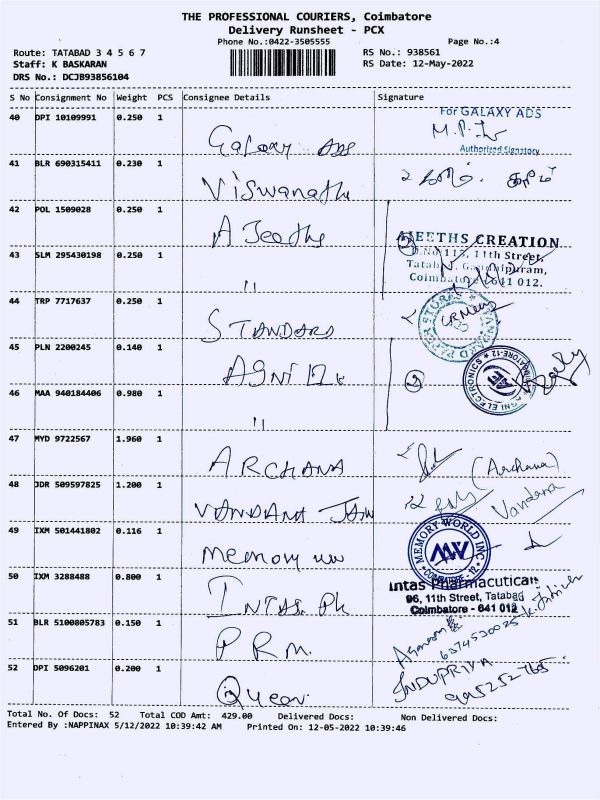 THE PROFESSIONAL COURIERS, Coimbatore
Delivery Runsheet - PCX
Phone No.:0422-3505555 Page No.:4
Route: TATABAD 3 4 5 6 7 RS No.: 938561
Staff: K BASKARAN RS Date: 12-May-2022
DRS No.: DCJB93856104
S No Consignment No Weight PCS Consignee Details Signature
40 DPI 10109991 0.250 1 Galaxy ADS
For GALAXY ADS
Authorized Signatory
41 BLR 690315411 0.230 1 Viswanath
42 POL 1509028 0.250 1 AJeeths
AJEETHS CREATION
D.No 113, 11th Street,
Tatabad, Gandhipuram,
Coimbatore 641 012.
43 SLM 295430198 0.250 1 "
44 TRP 7717637 0.250 1 STANDARD
STANDARD PAPER STORES
45 PLN 2200245 0.140 1 AGNI
AGNI ELECTRONICS * COIMBATORE-12 *
46 MAA 940184406 0.980 1 "
47 MYD 9722567 1.960 1 ARCHANA
(Archana)
48 JDR 509597825 1.200 1 VANDANA JAIN
Vandana
49 IXM 501441802 0.116 1 Memory
MEMORY WORLD INC
COIMBATORE - 12
50 IXM 3288488 0.800 1 INTAS. Ph
Intas Pharmacutican
96, 11th Street, Tatabad
Coimbatore - 641 012
51 BLR 5100805783 0.150 1 PRM
6374530025
52 DPI 5096201 0.200 1 Queen
INDUPRIYA
Total No. Of Docs: 52 Total COD Amt: 429.00 Delivered Docs: Non Delivered Docs:
Entered By :NAPPINAX 5/12/2022 10:39:42 AM Printed On: 12-05-2022 10:39:46